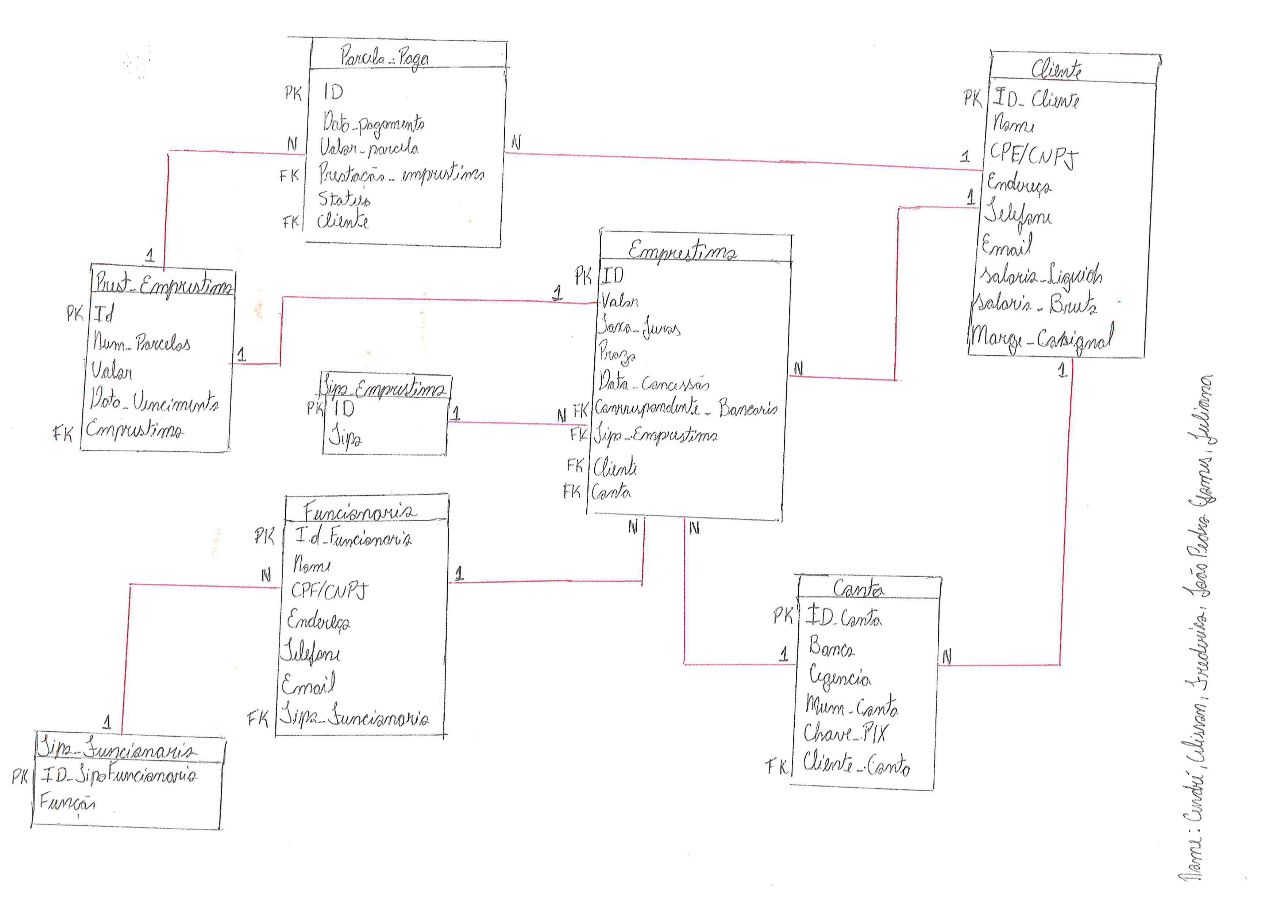 Parcela_Paga
PK ID
Data_pagamento
N Valor_parcela N
FK Prestação_emprestimo
Status
FK Cliente
Cliente
PK ID_Cliente
Nome
1 CPF/CNPJ
Endereço
1 Telefone
Email
Salario_Liquido
Salario_Bruto
Marge_Cosignal
1
1
Prest_Emprestimo
PK Id
Num_Parcelas
Valor 1
Data_Vencimento
FK Emprestimo
Emprestimo
PK ID
1 Valor
Taxa_Juros
Prazo
Data_Concessão N
FK Corrrespondente_Bancario
N FK Tipo_Emprestimo
FK Cliente
FK Conta
N N
Tipo_Emprestimo
PK ID 1
Tipo
Funcionario
PK Id_Funcionario
Nome
N CPF/CNPJ 1
Endereço
Telefone
Email
FK Tipo_Funcionario
Conta
PK ID_Conta
1 Banco N
Agencia
Num_Conta
Chave_PIX
FK Cliente_Conta
1
Tipo_Funcionario
PK ID_TipoFuncionario
Função
Nome: André, Alisson, Frederico, João Pedro Gomes, Juliana